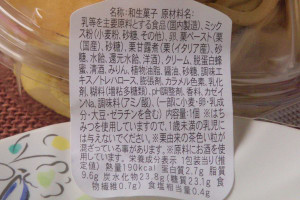 ●名称:和生菓子 原材料名:
乳等を主要原料とする食品(国内製造)、ミックス粉(小麦粉、砂糖、その他)、卵、栗ペースト(栗
(国産)、砂糖)、栗甘露煮(栗(イタリア産)、砂
糖、水飴、還元水飴、洋酒)、クリーム、脱脂蛋白
蜂蜜、清酒、みりん、植物油脂、醤油/砂糖、調味
エチル、トレハロース、膨張剤、カラメル色素、乳化
剤、糊料(増粘多糖類)、pH調整剤、香料、カゼイ
ンNa、調味料(アミノ酸)、(一部に小麦・卵・乳成
分・大豆・ゼラチンを含む) 内容量:1個 ※はち
みつを使用していますので、1歳未満の乳児に
は与えないでください。※栗由来の茶色い粒が
混ざっている事があります。※原料にお酒を使
用しています。栄養成分表示 1包装当り(推
定値) 熱量190kcal 蛋白質2.7g 脂質
9.6g 炭水化物23.8g(糖質23.1g 食
物繊維0.7g) 食塩相当量0.4g